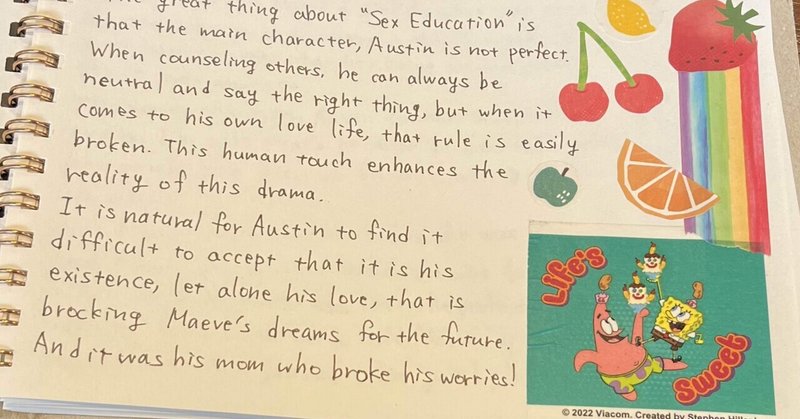 great thing about "Sex Education" is
that the main character, Austin is not perfect.
When counseling others, he can always be
neutral and say the right thing, but when it
comes to his own love life, that rule is easily
broken. This human touch enhances the
reality of this drama.
It is natural for Austin to find it
difficult to accept that it is his
existence, let alone his love, that is
brocking Maeve's dreams for the future.
And it was his mom who broke his worries!
Life's
Sweet
© 2022 Viacom. Created by Stephen